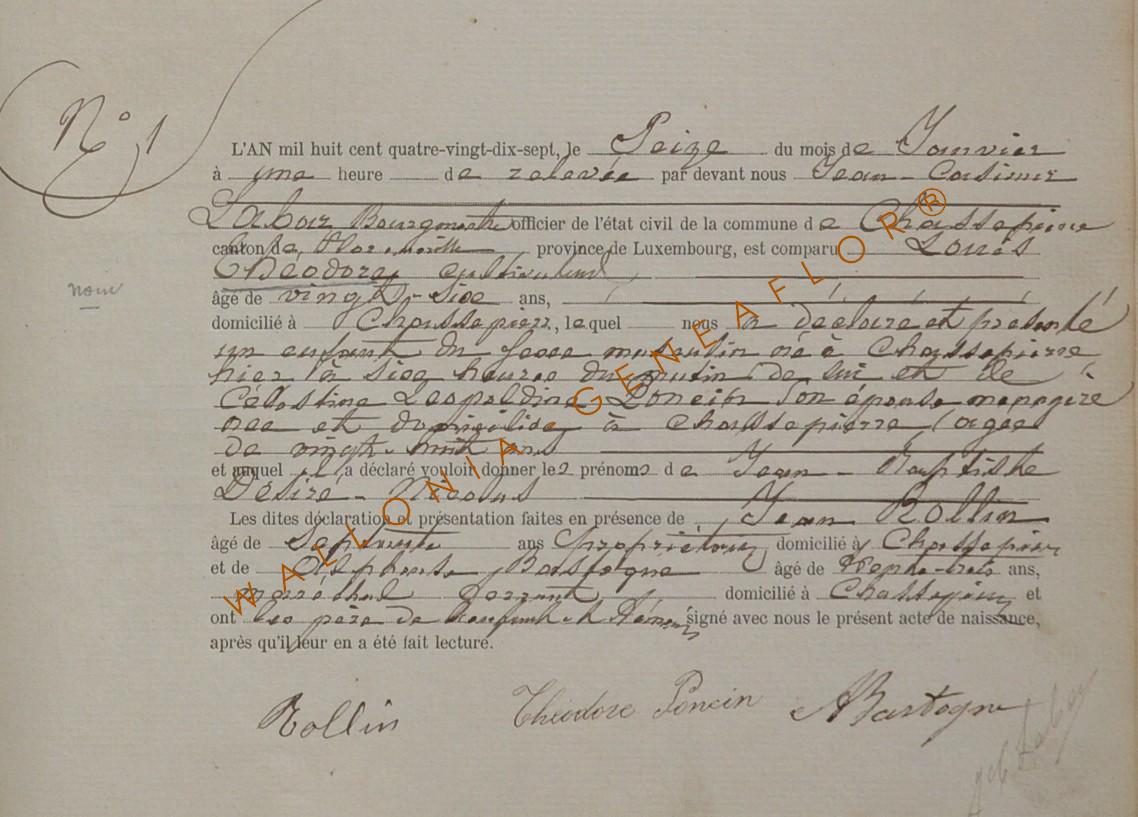 N° 1
L'AN mil huit cent quatre-vingt-dix-sept, le Seize du mois de Janvier
à une heure de relevée par devant nous Jean-Casimir
Labar Bourgmestre officier de l'état civil de la commune de Chassepierre
canton de Florenville province de Luxembourg, est comparu Louis
Théodore, cultivateur
nom
âgé de vingt-six ans,
domicilié à Chassepierre, lequel nous a déclaré et présenté
un enfant du sexe masculin né à Chassepierre
hier à six heures du matin de lui et de
Célestine Léopoldine Poncin son épouse ménagère
née et domiciliée à Chassepierre âgée
de vingt-huit ans
et auquel il a déclaré vouloir donner les prénoms de Jean-Baptiste
Désiré-Nicolas
Les dites déclaration et présentation faites en présence de Jean Rollin
âgé de Septante ans propriétaire, domicilié à Chassepierre
et de Alphonse Bastogne âgé de trente-trois ans,
maréchal ferrant domicilié à Chassepierre et
ont les père de l'enfant et témoins signé avec nous le présent acte de naissance,
après qu'il leur en a été fait lecture.
Rollin Théodore Poncin ABastogne
WALLONIA GENEAFLOR®